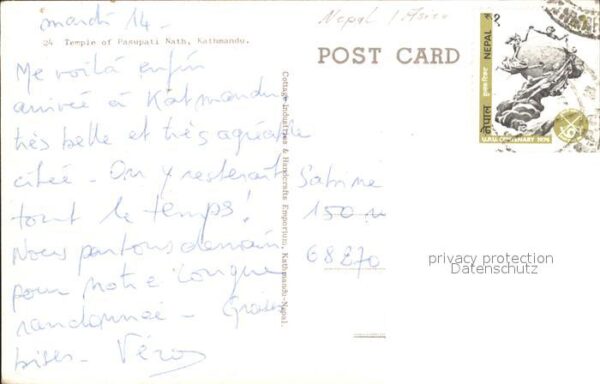 mardi 14 -
24 Temple of Pasupati Nath, Kathmandu.
Me voilà enfin
arrivée à Katmandu
très belle et très agréable
citée - On y resterait
tout le temps!
Nous partons demain
pour notre longue
randonnée - Grosses
bises - Véro
Cottage Industries & Handcrafts Emporium, Kathmandu-Nepal.
Nepal / Asien
POST CARD
NEPAL
नेपाल
U.P.U. CENTENARY 1974
Sabrine
150
68270
privacy protection
Datenschutz